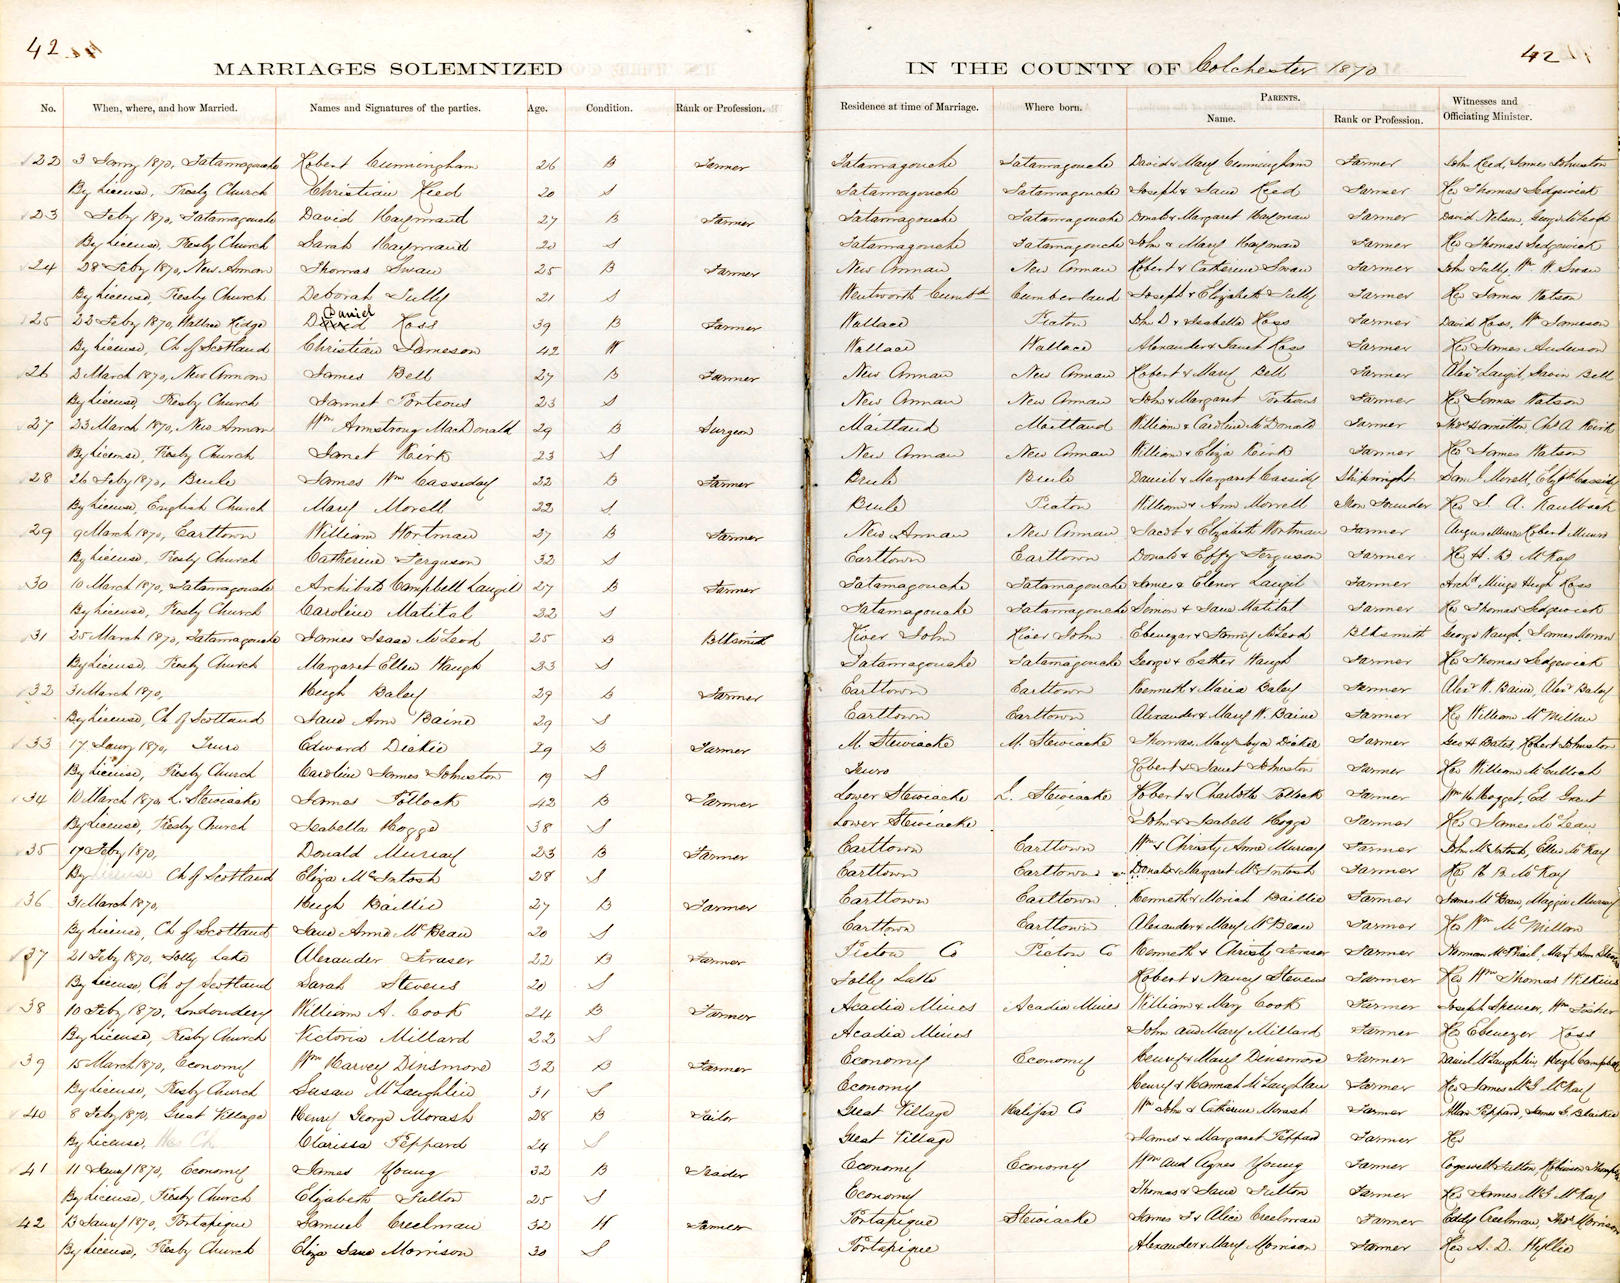 42
MARRIAGES SOLEMNIZED
IN THE COUNTY OF Colchester 1870
42
No. When, where, and how Married. Names and Signatures of the parties. Age. Condition. Rank or Profession. Residence at time of Marriage. Where born. PARENTS. Name. Rank or Profession. Witnesses and Officiating Minister.
22 3 Janry 1870, Tatamagouche Robert Cunningham 26 B Farmer Tatamagouche Tatamagouche David & Mary Cunningham Farmer John Reed, James Johnston
By License, Presby Church Christian Reed 20 S Tatamagouche Tatamagouche Joseph & Jane Reed Farmer Rev Thomas Sedgewick
23 Feby 1870, Tatamagouche David Haymand 27 B Farmer Tatamagouche Tatamagouche Donald & Margaret Hayman Farmer David Nelson, George McLeod
By License, Presby Church Sarah Haymand 20 S Tatamagouche Tatamagouche John & Mary Hayman Farmer Rev Thomas Sedgewick
24 28 Feby 1870, New Annan Thomas Swan 25 B Farmer New Annan New Annan Robert & Catherine Swan Farmer John Tully, Wm W. Swan
By License, Presby Church Deborah Tully 21 S Wentworth Cumbd Cumberland Joseph & Elizabeth Tully Farmer Rev James Watson
25 22 Feby 1870, Wallace Ridge Daniel Ross 39 B Farmer Wallace Picton John D & Isabella Ross Farmer David Ross, Wm Jameson
By License, Ch of Scotland Christian Jameson 42 W Wallace Wallace Alexander & Janet Ross Farmer Rev James Anderson
26 2 March 1870, New Annan James Bell 27 B Farmer New Annan New Annan Robert & Mary Bell Farmer Alexr Laugil, Gavin Bell
By License, Presby Church Jannet Porteous 23 S New Annan New Annan John & Margaret Porteous Farmer Rev James Watson
27 23 March 1870, New Annan Wm Armstrong MacDonald 29 B Surgeon Maitland Maitland William & Caroline McDonald Farmer Thos Hamilton, Chs A Kirk
By License, Presby Church Janet Kirk 23 S New Annan New Annan William & Eliza Kirk Farmer Rev James Watson
28 26 Feby 1870, Brule James Wm Cassiday 22 B Farmer Brule Brule Daniel & Margaret Cassidy Shipwright Saml J Morell, Elizth Cassidy
By License, English Church Mary Morell 22 S Brule Picton William & Ann Morrell Iron Founder Rev J. A. Kaulback
29 9 March 1870, Earltown William Wortman 27 B Farmer New Annan New Annan Jacob & Elizabeth Wortman Farmer Angus Munro Robert Munro
By License, Presby Church Catherine Ferguson 32 S Earltown Earltown Donald & Effy Ferguson Farmer Rev H. B. McKay
30 10 March 1870, Tatamagouche Archibald Campbell Laugil 27 B Farmer Tatamagouche Tatamagouche James & Elenor Laugil Farmer Archd Mingo Hugh Ross
By License, Presby Church Caroline Matital 22 S Tatamagouche Tatamagouche Simon & Jane Matital Farmer Rev Thomas Sedgewick
31 25 March 1870, Tatamagouche James Isaac McLeod 25 B Blksmith River John River John Ebenezar & Fanny McLeod Blksmith George Waugh, James Morrow
By License, Presby Church Margaret Ellen Waugh 23 S Tatamagouche Tatamagouche George & Esther Waugh Farmer Rev Thomas Sedgewick
32 31 March 1870, Hugh Baley 29 B Farmer Earltown Earltown Kenneth & Maria Baley Farmer Alexr W. Baine, Alexr Baley
By License, Ch of Scotland Jane Ann Baine 29 S Earltown Earltown Alexander & Mary W. Baine Farmer Rev William McMillan
33 17 Janry 1870, Truro Edward Dickie 29 B Farmer M. Stewiacke M. Stewiacke Thomas, Mary Dickie Farmer Geo H Bates, Robert Johnston
By License, Presby Church Caroline James Johnston 19 S Truro Robert & Janet Johnston Farmer Rev William McCulloch
34 10 March 1870, L. Stewiacke James Pollock 42 B Farmer Lower Stewiacke L. Stewiacke Robert & Charlotte Pollock Farmer Wm H. Hogget, Ed Grant
By License, Presby Church Isabella Hogge 38 S Lower Stewiacke John & Isabell Hogge Farmer Rev James McLean
35 17 Feby 1870, Donald Murray 23 B Farmer Earltown Earltown Wm & Christy Anne Murray Farmer John McIntosh, Ellen McKay
By License Ch of Scotland Eliza McIntosh 28 S Earltown Earltown Donald & Margaret McIntosh Farmer Rev H. B. McKay
36 31 March 1870, Hugh Baillie 27 B Farmer Earltown Earltown Kenneth & Moriah Baillie Farmer James McBean, Maggie Murray
By License, Ch of Scotland Jane Anne McBean 20 S Earltown Earltown Alexander & Mary McBean Farmer Rev Wm McMillan
37 21 Feby 1870, Folly Lake Alexander Fraser 22 B Farmer Picton Co Picton Co Kenneth & Christy Fraser Farmer Norman McPhail, Mary Ann Stevens
By License, Ch of Scotland Sarah Stevens 20 S Folly Lake Robert & Nancy Stevens Farmer Rev Wm Thomas Wilkins
38 10 Feby 1870, Londondery William A. Cook 24 B Farmer Acadia Mines Acadia Mines William & Mary Cook Farmer Joseph Spencer, Wm Fisher
By License, Presby Church Victoria Millard 22 S Acadia Mines John and Mary Millard Farmer Rev Ebenezer Ross
39 15 March 1870, Economy Wm Harvey Dinsmore 32 B Farmer Economy Economy Henry & Mary Dinsmore Farmer Daniel McLaughlin, Hugh Campbell
By License, Presby Church Susan McLaughlin 31 S Economy Henry & Hannah McLaughlan Farmer Rev James McG McKay
40 8 Feby 1870, Great Village Henry George Morash 28 B Tailor Great Village Halifax Co Wm John & Catherine Morash Farmer Allan Peppard, James S. Blackie
By License, Wes Ch Clarissa Peppard 24 S Great Village James & Margaret Peppard Farmer Rev
41 11 Janry 1870, Economy James Young 32 B Trader Economy Economy Wm and Agnes Young Farmer Cogswell Fulton, Robinson Thompson
By License, Presby Church Elizabeth Fulton 25 S Economy Thomas & Jane Fulton Farmer Rev James McG McKay
42 13 Janry 1870, Portapique Samuel Creelman 32 W Farmer Portapique Stewiacke James F & Alice Creelman Farmer Eddy Creelman, Thos Morrison
By License, Presby Church Eliza Jane Morrison 30 S Portapique Alexander & Mary Morrison Farmer Rev A. D. Wyllie